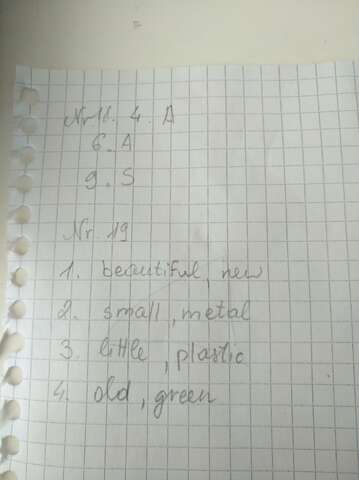 Nr 11. 4. A
6. A
9. S
Nr. 19
1. beautiful, new
2. small, metal
3. little, plastic
4. old, green